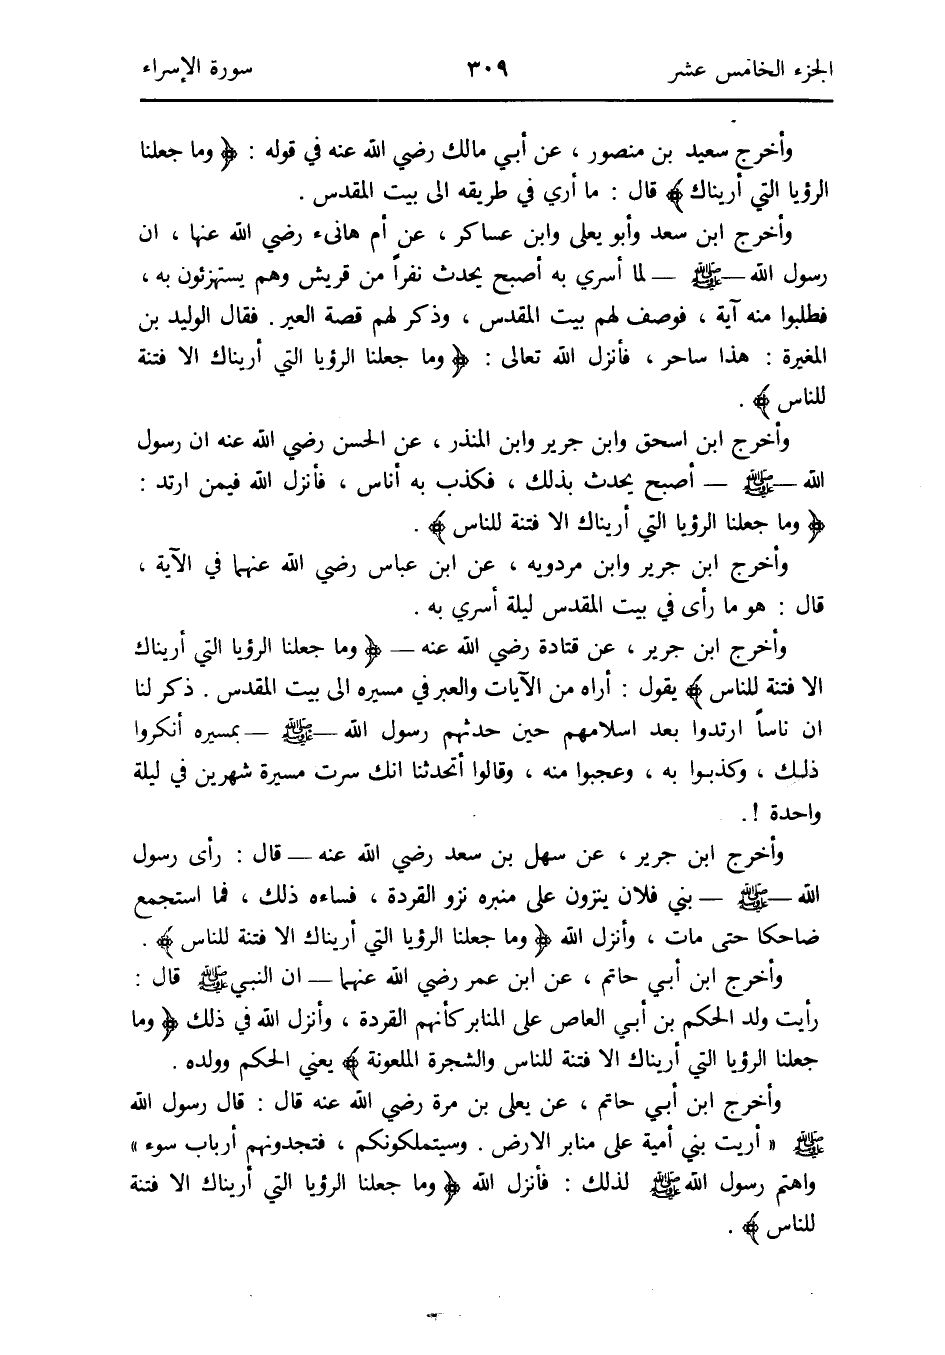 الجزء الخامس عشر ٣٠٩ سورة الإسراء
وأخرج سعيد بن منصور ، عن أبي مالك رضي الله عنه في قوله : ﴿ وما جعلنا
الرؤيا التي أريناك ﴾ قال : ما أري في طريقه الى بيت المقدس .
وأخرج ابن سعد وأبو يعلى وابن عساكر ، عن أم هانىء رضي الله عنها ، ان
رسول الله — ﷺ — لما أسري به أصبح يحدث نفراً من قريش وهم يستهزئون به ،
فطلبوا منه آية ، فوصف لهم بيت المقدس ، وذكر لهم قصة العير . فقال الوليد بن
المغيرة : هذا ساحر ، فأنزل الله تعالى : ﴿ وما جعلنا الرؤيا التي أريناك الا فتنة
للناس ﴾ .
وأخرج ابن اسحق وابن جرير وابن المنذر ، عن الحسن رضي الله عنه ان رسول
الله — ﷺ — أصبح يحدث بذلك ، فكذب به أناس ، فأنزل الله فيمن ارتد :
﴿ وما جعلنا الرؤيا التي أريناك الا فتنة للناس ﴾ .
وأخرج ابن جرير وابن مردويه ، عن ابن عباس رضي الله عنهما في الآية ،
قال : هو ما رأى في بيت المقدس ليلة أسري به .
وأخرج ابن جرير ، عن قتادة رضي الله عنه — ﴿ وما جعلنا الرؤيا التي أريناك
الا فتنة للناس ﴾ يقول : أراه من الآيات والعبر في مسيره الى بيت المقدس . ذكر لنا
ان ناساً ارتدوا بعد اسلامهم حين حدثهم رسول الله — ﷺ — بمسيره أنكروا
ذلك ، وكذبوا به ، وعجبوا منه ، وقالوا أتحدثنا انك سرت مسيرة شهرين في ليلة
واحدة !.
وأخرج ابن جرير ، عن سهل بن سعد رضي الله عنه — قال : رأى رسول
الله — ﷺ — بني فلان ينزون على منبره نزو القردة ، فساءه ذلك ، فما استجمع
ضاحكا حتى مات ، وأنزل الله ﴿ وما جعلنا الرؤيا التي أريناك الا فتنة للناس ﴾ .
وأخرج ابن أبي حاتم ، عن ابن عمر رضي الله عنهما — ان النبي ﷺ قال :
رأيت ولد الحكم بن أبي العاص على المنابر كأنهم القردة ، وأنزل الله في ذلك ﴿ وما
جعلنا الرؤيا التي أريناك الا فتنة للناس والشجرة الملعونة ﴾ يعني الحكم وولده .
وأخرج ابن أبي حاتم ، عن يعلى بن مرة رضي الله عنه قال : قال رسول الله
ﷺ « أريت بني أمية على منابر الارض . وسيتملكونكم ، فتجدونهم أرباب سوء »
واهتم رسول الله ﷺ لذلك : فأنزل الله ﴿ وما جعلنا الرؤيا التي أريناك الا فتنة
للناس ﴾ .